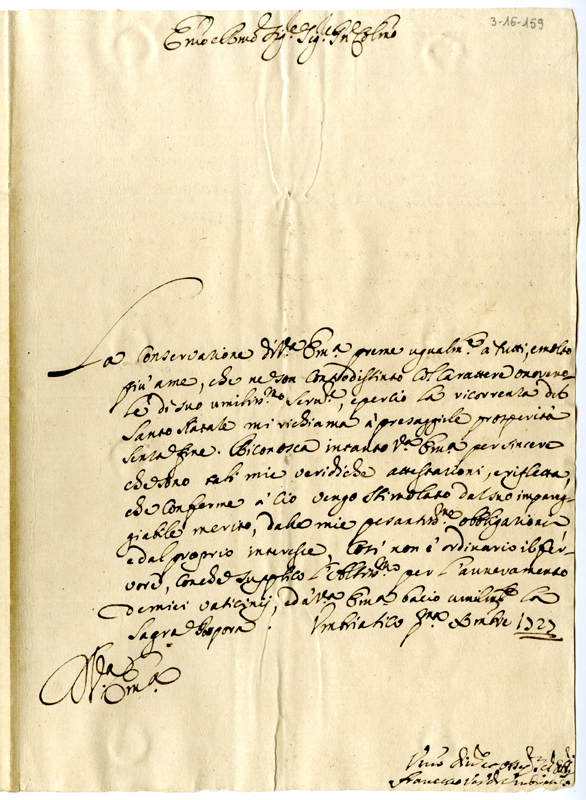 3-16-159
Em̃o e Rmõ Sig.r Sig.r Pñe Colmõ
La Conservazione di V.ra Em.a preme ugualm.te a tutti, e molto
più a me, che ne son contradistinto col Carattere onorevo-
le di suo umiliss.mo Serv.re, e perciò la ricorrenza del
Santo Natale mi richiama à presaggirle prosperità
senza fine. Riconosca intanto V.ra Em.a per sincere
che sono tali mie veridiche attestazioni, e rifletta,
che conforme à ciò vengo stimolato dal suo impareg-
giabile merito, dalle mie pesantiss.me obbligazioni,
e dal proprio interesse, così non è ordinario il fer-
vore, con che supplico l'Altiss.mo per l'avveramento
de miei vaticinij, ed à V.ra Em.a bacio umilm.te la
Sagra Porpora. Umbriatico p.mo Xmbre 1727
D V.ra
Em.a
Francesco Ves.o d'Umbriatico